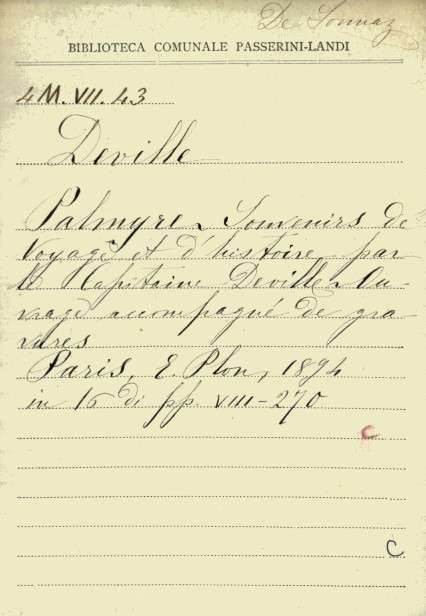 De Sonnaz
BIBLIOTECA COMUNALE PASSERINI-LANDI
4 M. VII. 43
Deville
Palmyre - Souvenirs de
voyage et d'histoire, par
le Capitaine Deville - Ou-
vrage accompagné de gra-
vures
Paris, E. Plon, 1894
in 16 di pp. VIII-270
C
C